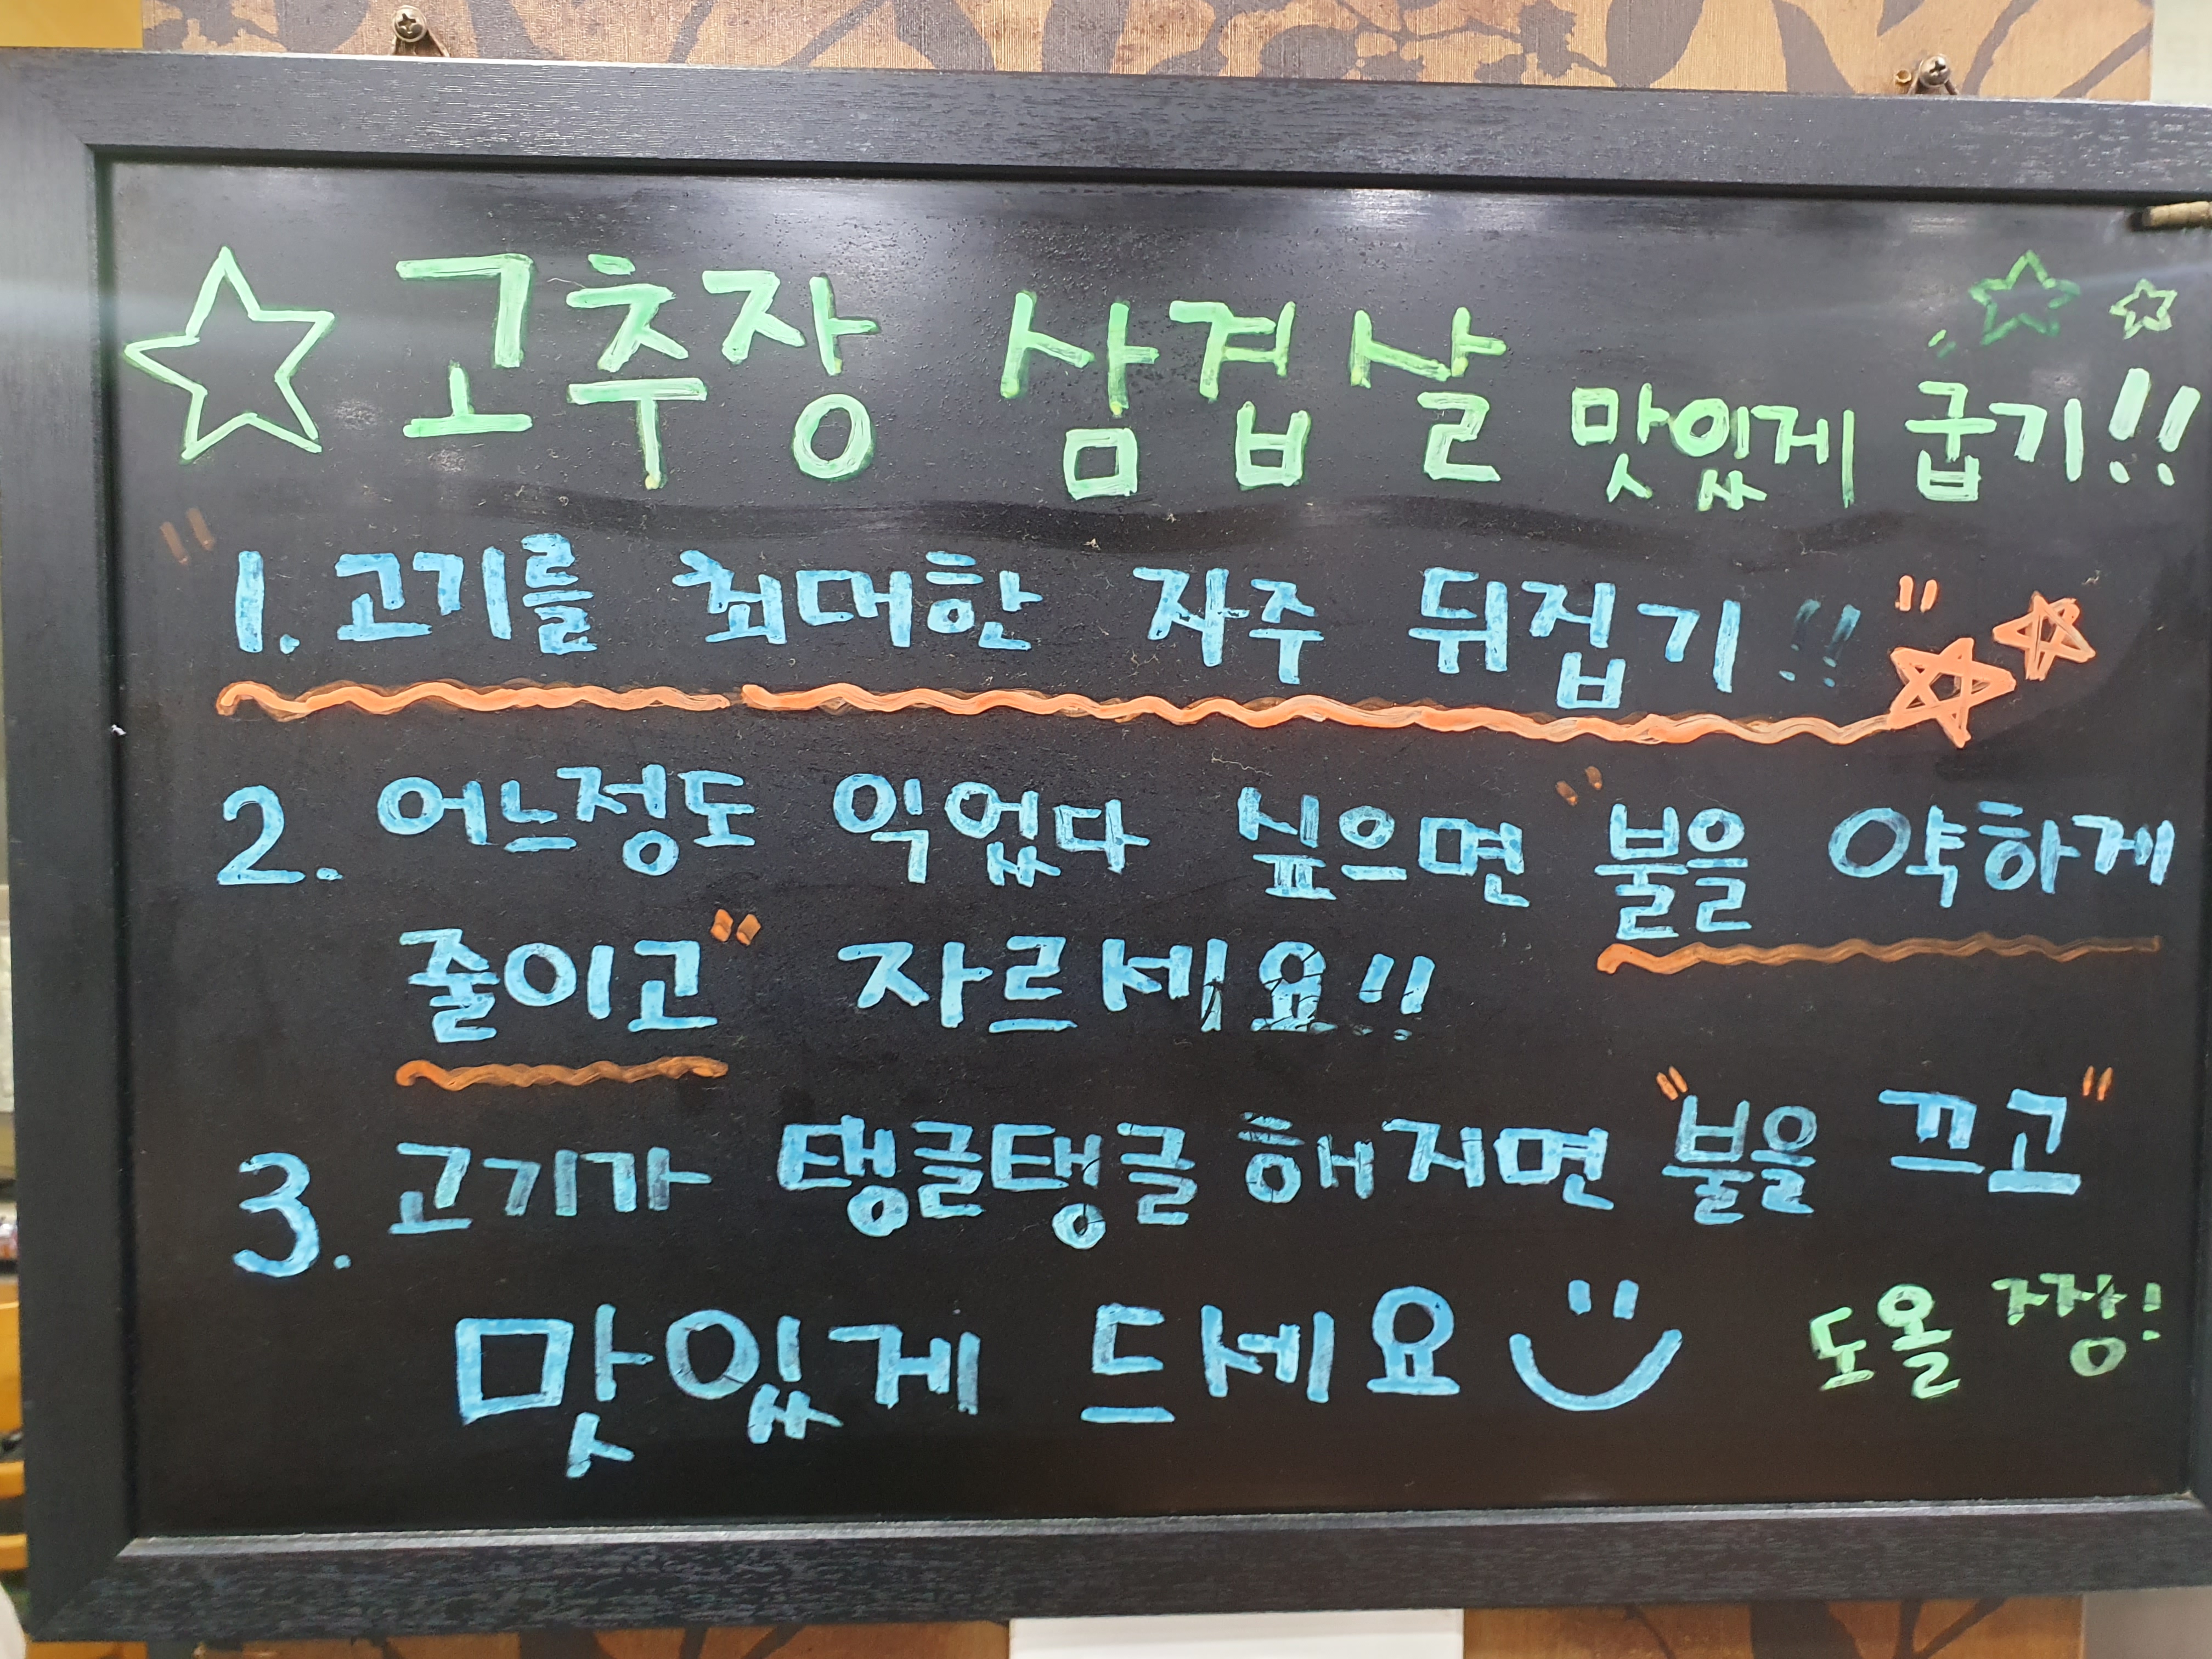 ☆ 고추장 삼겹살 맛있게 굽기!! ☆☆
"1. 고기를 최대한 자주 뒤집기!!" ☆☆
2. 어느정도 익었다 싶으면 "불을 약하게
줄이고" 자르세요!!
3. 고기가 탱글탱글 해지면 "불을 끄고"
맛있게 드세요
도올 짱!